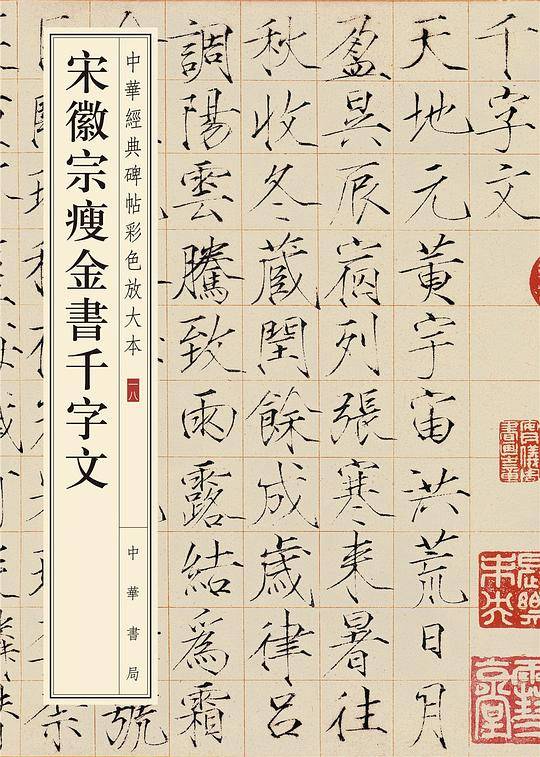 宋徽宗瘦金書千字文
中華經典碑帖彩色放大本
一八
中華書局
千字文
天地元黃宇宙洪荒日月
盈昃辰宿列張寒来暑往
秋收冬藏閏餘成歲律呂
調陽雲騰致雨露結爲霜
號